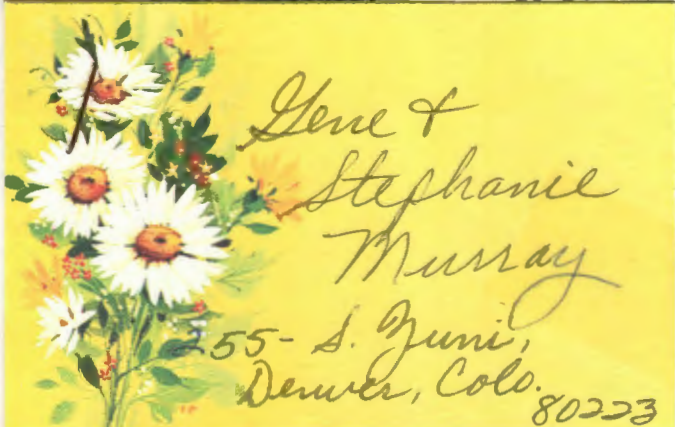 Gene &
Stephanie
Murray
255- S. Zuni,
Denver, Colo.
80223